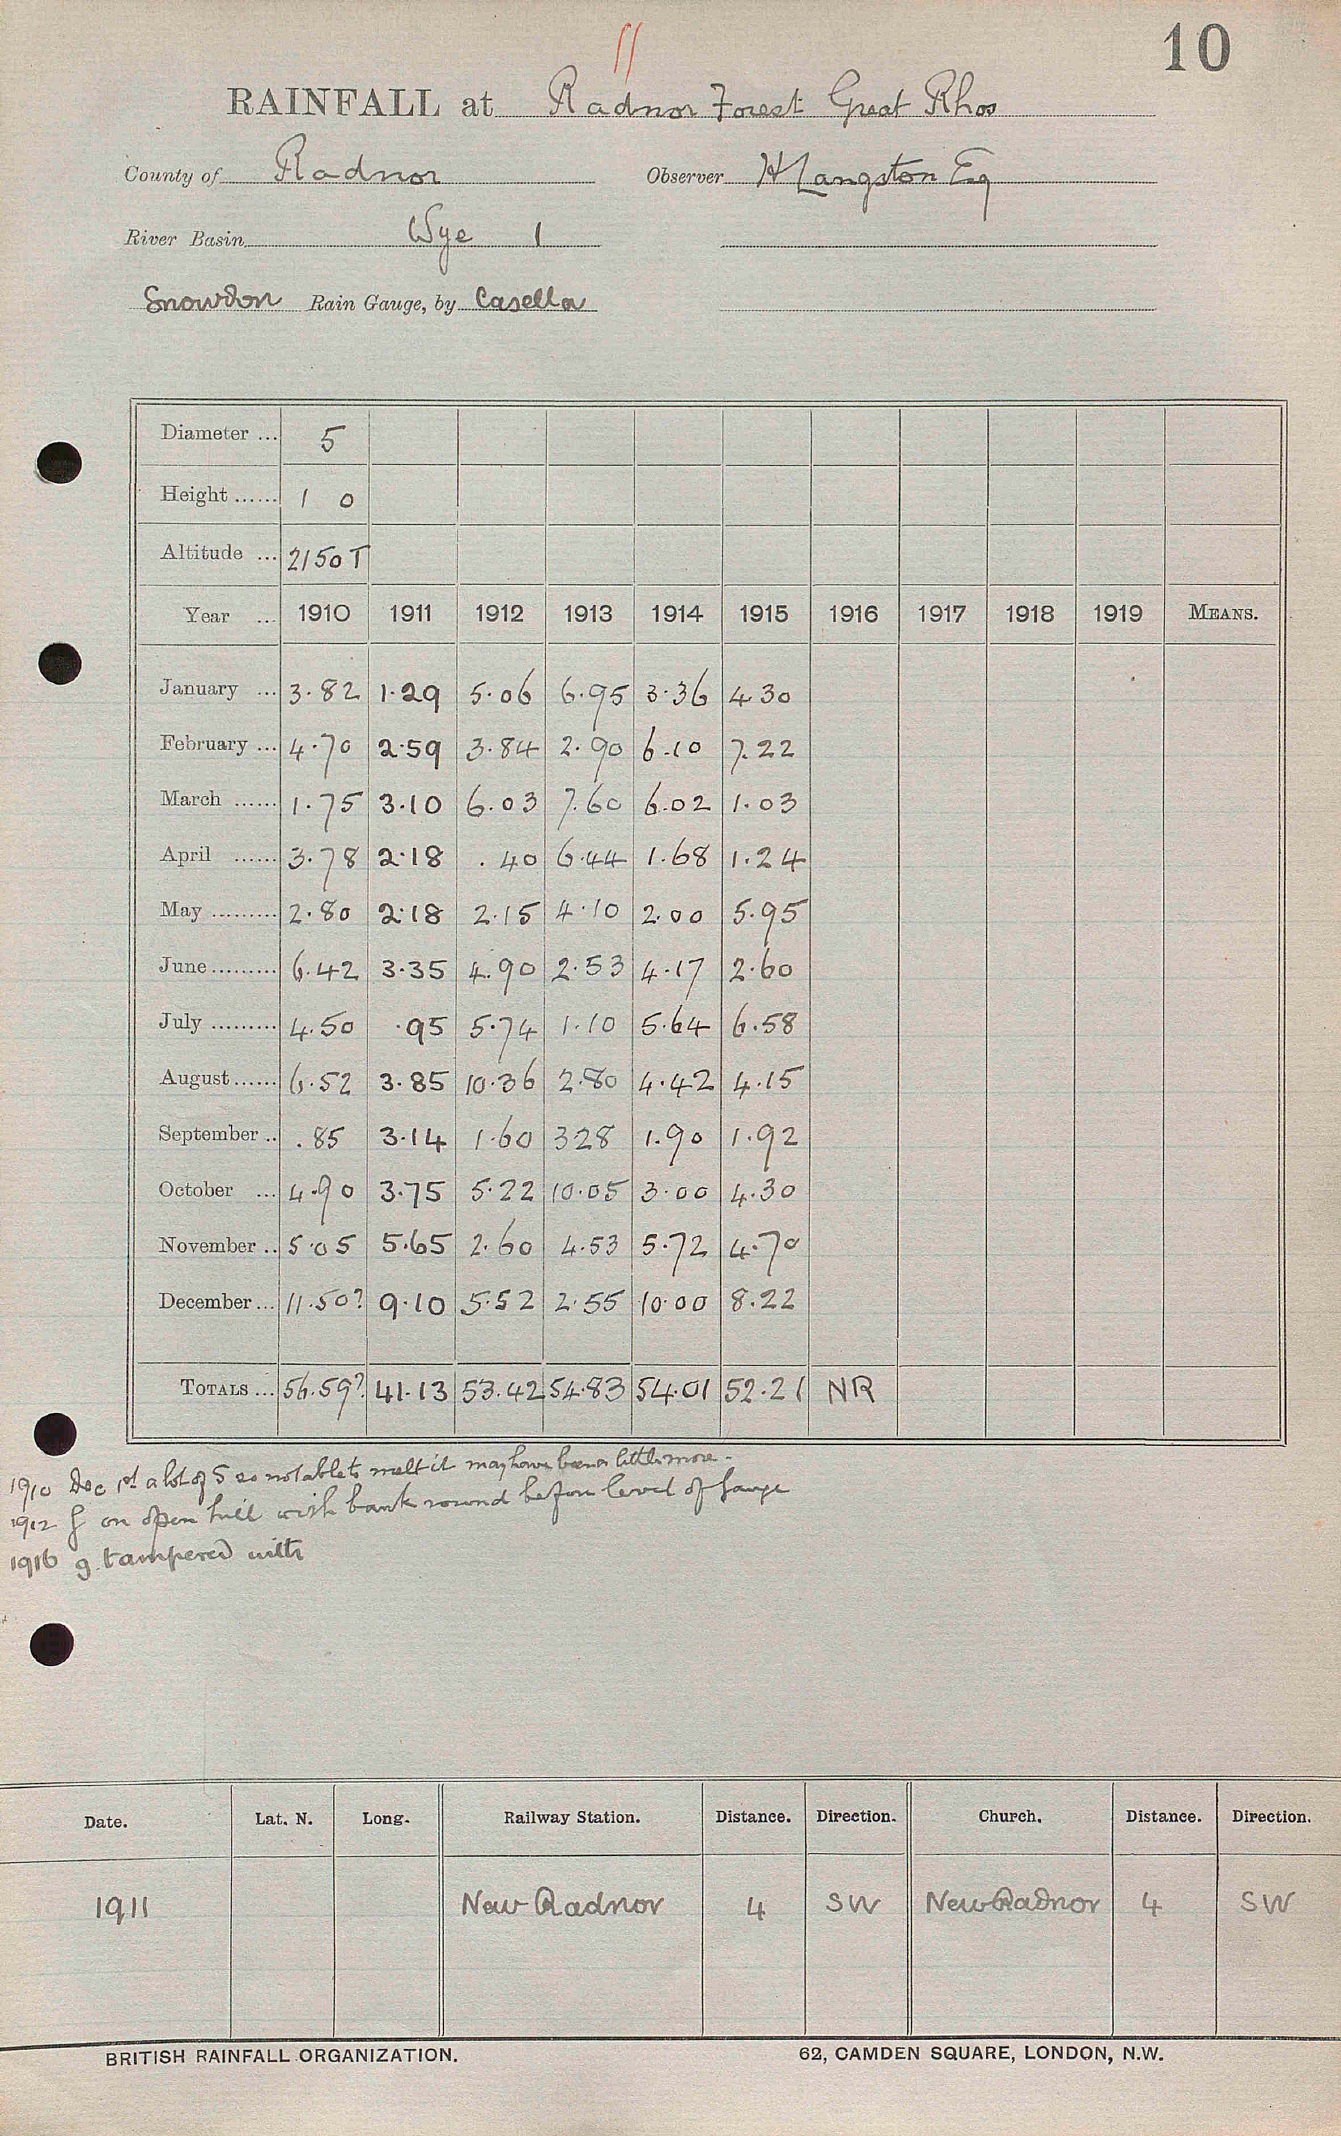 10
11
RAINFALL at Radnor Forest Great Rhos
County of Radnor Observer H Langston Esq
River Basin Wye 1
Snowdon Rain Gauge, by Casella
Diameter ... 5
Height ...... 1 0
Altitude ... 2150 T
Year ... 1910 1911 1912 1913 1914 1915 1916 1917 1918 1919 MEANS.
January ... 3.82 1.29 5.06 6.95 3.36 4.30
February ... 4.70 2.59 3.84 2.90 6.10 7.22
March ...... 1.75 3.10 6.03 7.60 6.02 1.03
April ...... 3.78 2.18 .40 6.44 1.68 1.24
May ......... 2.80 2.18 2.15 4.10 2.00 5.95
June ......... 6.42 3.35 4.90 2.53 4.17 2.60
July ......... 4.50 .95 5.74 1.10 5.64 6.58
August ...... 6.52 3.85 10.36 2.80 4.42 4.15
September .. .85 3.14 1.60 328 1.90 1.92
October ... 4.90 3.75 5.22 10.05 3.00 4.30
November .. 5.05 5.65 2.60 4.53 5.72 4.70
December ... 11.50? 9.10 5.52 2.55 10.00 8.22
TOTALS ... 56.59? 41.13 53.42 54.83 54.01 52.21 NR
1910 Dec 1st a lot of S so not able to melt it may have been a little more -
1912 g on open hill with bank round before level of gauge
1916 g. tampered with
Date. Lat. N. Long. Railway Station. Distance. Direction. Church. Distance. Direction.
1911 New Radnor 4 SW New Radnor 4 SW
BRITISH RAINFALL ORGANIZATION. 62, CAMDEN SQUARE, LONDON, N.W.